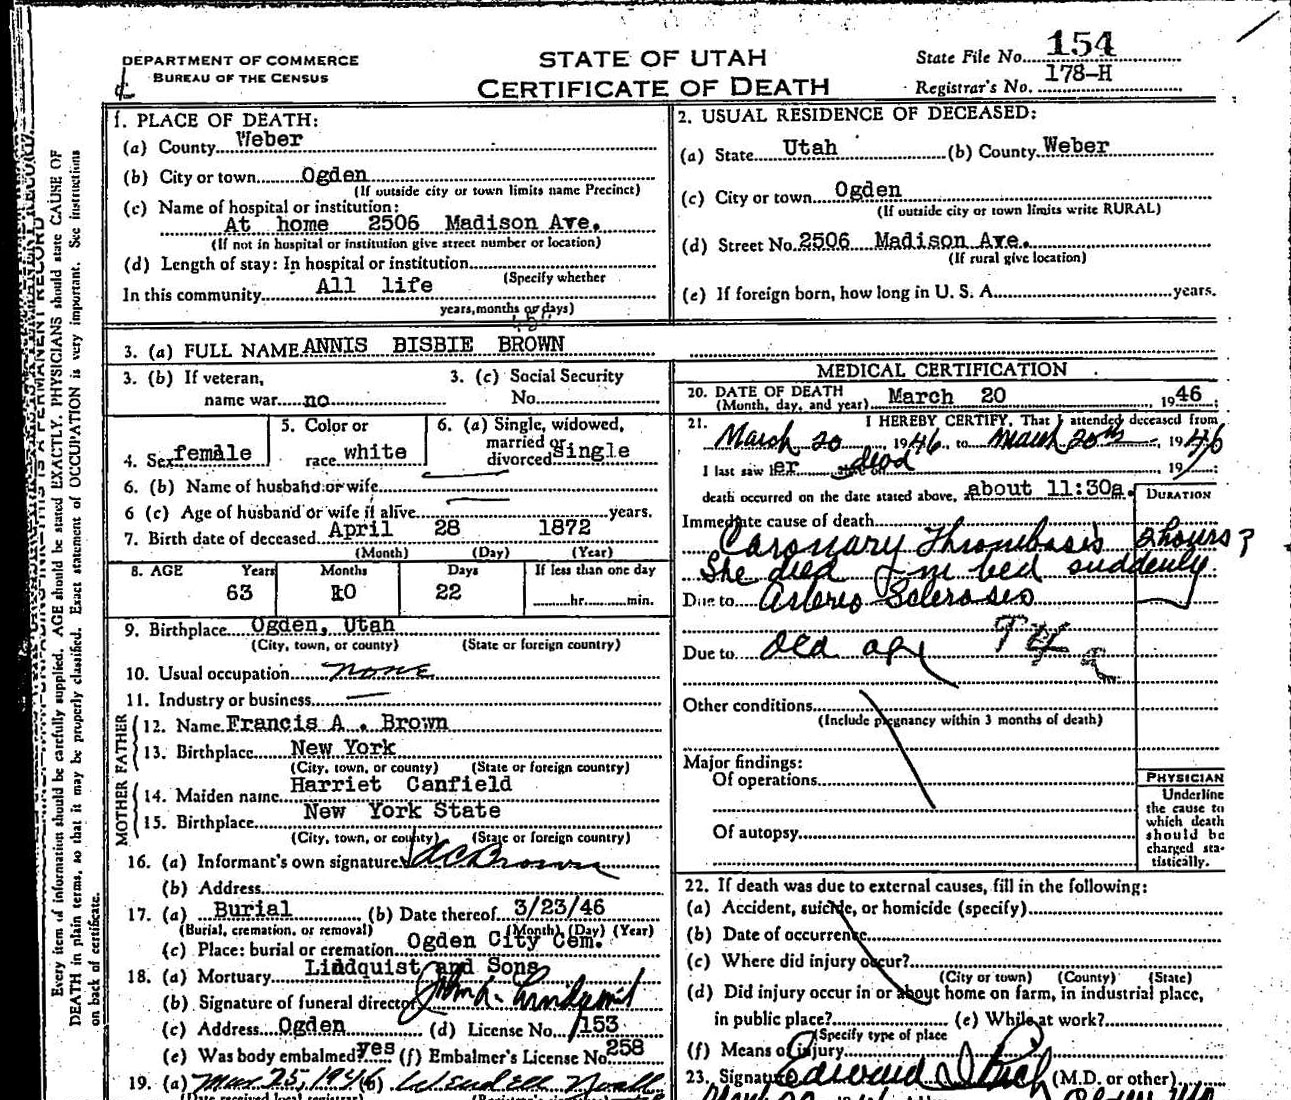 DEPARTMENT OF COMMERCE
BUREAU OF THE CENSUS
STATE OF UTAH
CERTIFICATE OF DEATH
State File No. 154
Registrar's No. 178-H
1. PLACE OF DEATH:
(a) County Weber
(b) City or town Ogden
(If outside city or town limits name Precinct)
(c) Name of hospital or institution:
At home 2506 Madison Ave.
(If not in hospital or institution give street number or location)
(d) Length of stay: In hospital or institution
(Specify whether
In this community All life
years, months or days)
2. USUAL RESIDENCE OF DECEASED:
(a) State Utah (b) County Weber
(c) City or town Ogden
(If outside city or town limits write RURAL)
(d) Street No. 2506 Madison Ave.
(If rural give location)
(e) If foreign born, how long in U. S. A. years.
3. (a) FULL NAME ANNIS BISBIE BROWN
3. (b) If veteran, name war no
3. (c) Social Security No.
4. Sex female
5. Color or race white
6. (a) Single, widowed, married or divorced single
6. (b) Name of husband or wife
6 (c) Age of husband or wife if alive years.
7. Birth date of deceased April 28 1872
(Month) (Day) (Year)
8. AGE Years Months Days If less than one day
63 10 22 hr. min.
9. Birthplace Ogden, Utah
(City, town, or county) (State or foreign country)
10. Usual occupation none
11. Industry or business
FATHER
12. Name Francis A. Brown
13. Birthplace New York
(City, town, or county) (State or foreign country)
MOTHER
14. Maiden name Harriet Canfield
15. Birthplace New York State
(City, town, or county) (State or foreign country)
16. (a) Informant's own signature Brown
(b) Address
17. (a) Burial (b) Date thereof 3/23/46
(Burial, cremation, or removal) (Month) (Day) (Year)
(c) Place: burial or cremation Ogden City Cem.
18. (a) Mortuary Lindquist and Sons
(b) Signature of funeral director John Lindquist
(c) Address Ogden (d) License No. 153
(e) Was body embalmed? yes (f) Embalmer's License No. 258
19. (a) Mar 25, 1946 (b) Wendell Noall
(Date received local registrar)
MEDICAL CERTIFICATION
20. DATE OF DEATH
(Month, day, and year) March 20 1946
21. I HEREBY CERTIFY, That I attended deceased from
March 20 1946 to March 20th, 1946
I last saw her dead 19
death occurred on the date stated above, about 11:30a.
DURATION
Immediate cause of death
Caronary Thrombosis 2 hours?
She died in bed suddenly
Due to Arterio Sclerosis
Due to old age
Other conditions
(Include pregnancy within 3 months of death)
Major findings:
Of operations
Of autopsy
PHYSICIAN
Underline
the cause to
which death
should be
charged sta-
tistically.
22. If death was due to external causes, fill in the following:
(a) Accident, suicide, or homicide (specify)
(b) Date of occurrence
(c) Where did injury occur?
(City or town) (County) (State)
(d) Did injury occur in or about home on farm, in industrial place,
in public place? (e) While at work?
(Specify type of place
(f) Means of injury
23. Signature Edward I Rich (M.D. or other)
Every item of information should be carefully supplied. AGE should be stated EXACTLY. PHYSICIANS should state CAUSE OF
DEATH in plain terms, so that it may be properly classified. Exact statement of OCCUPATION is very important. See instructions
on back of certificate.